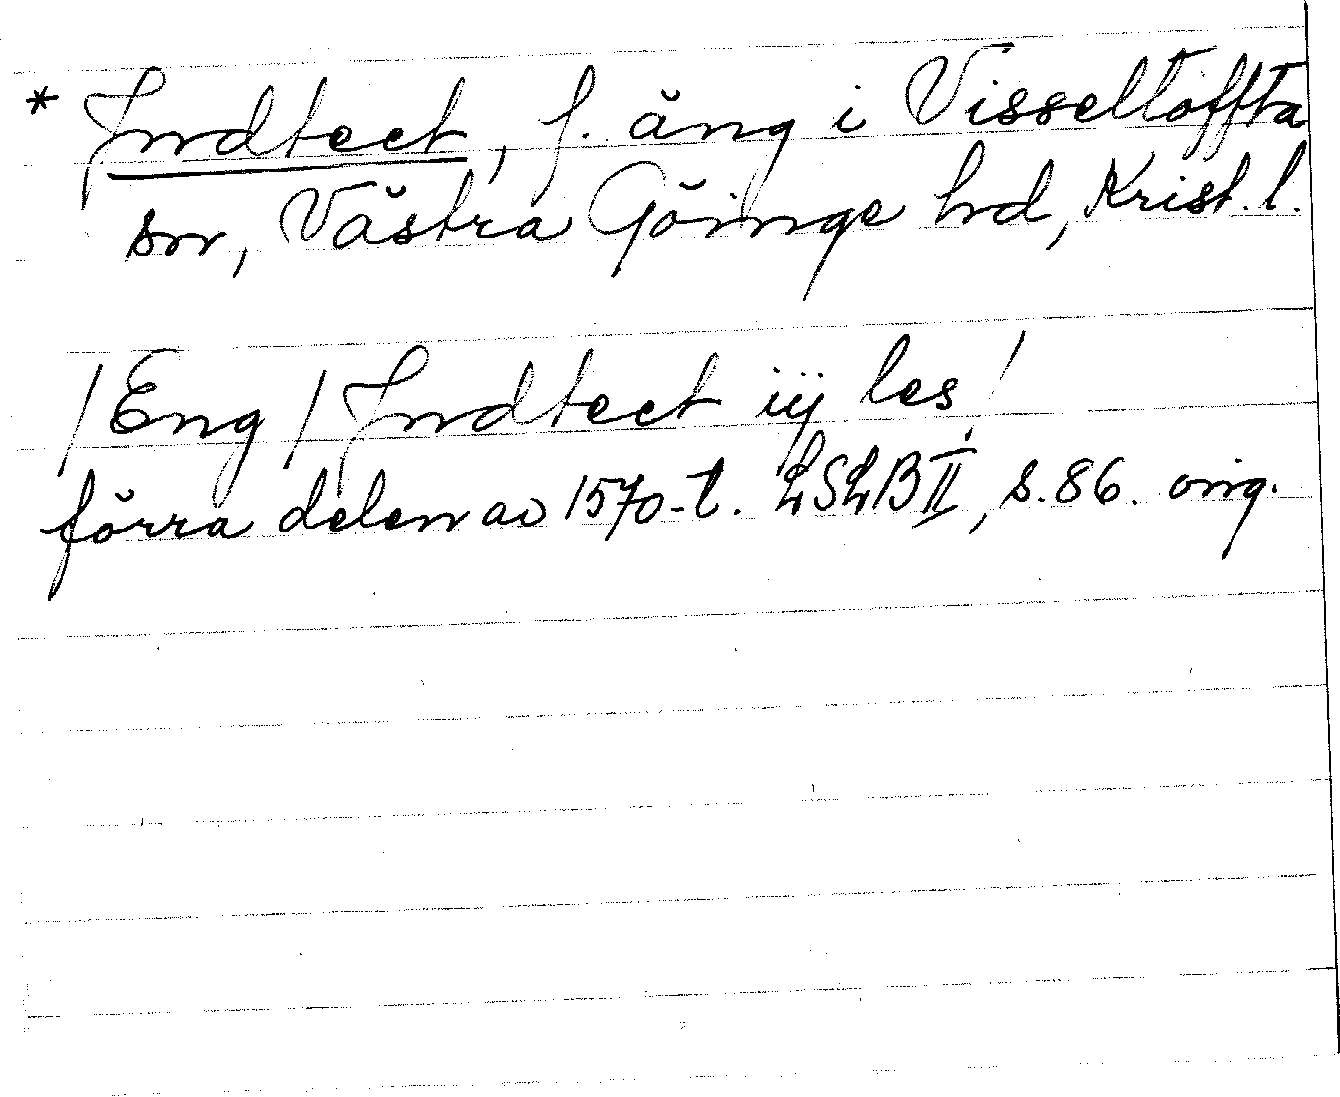 * Jndtect, f. äng i Visseltoffta
sn, Västra Göinge hd, Krist. l.
/ Eng / Jndtect iij les /
förra delen av 1570-t. LSLB II, s. 86. orig.